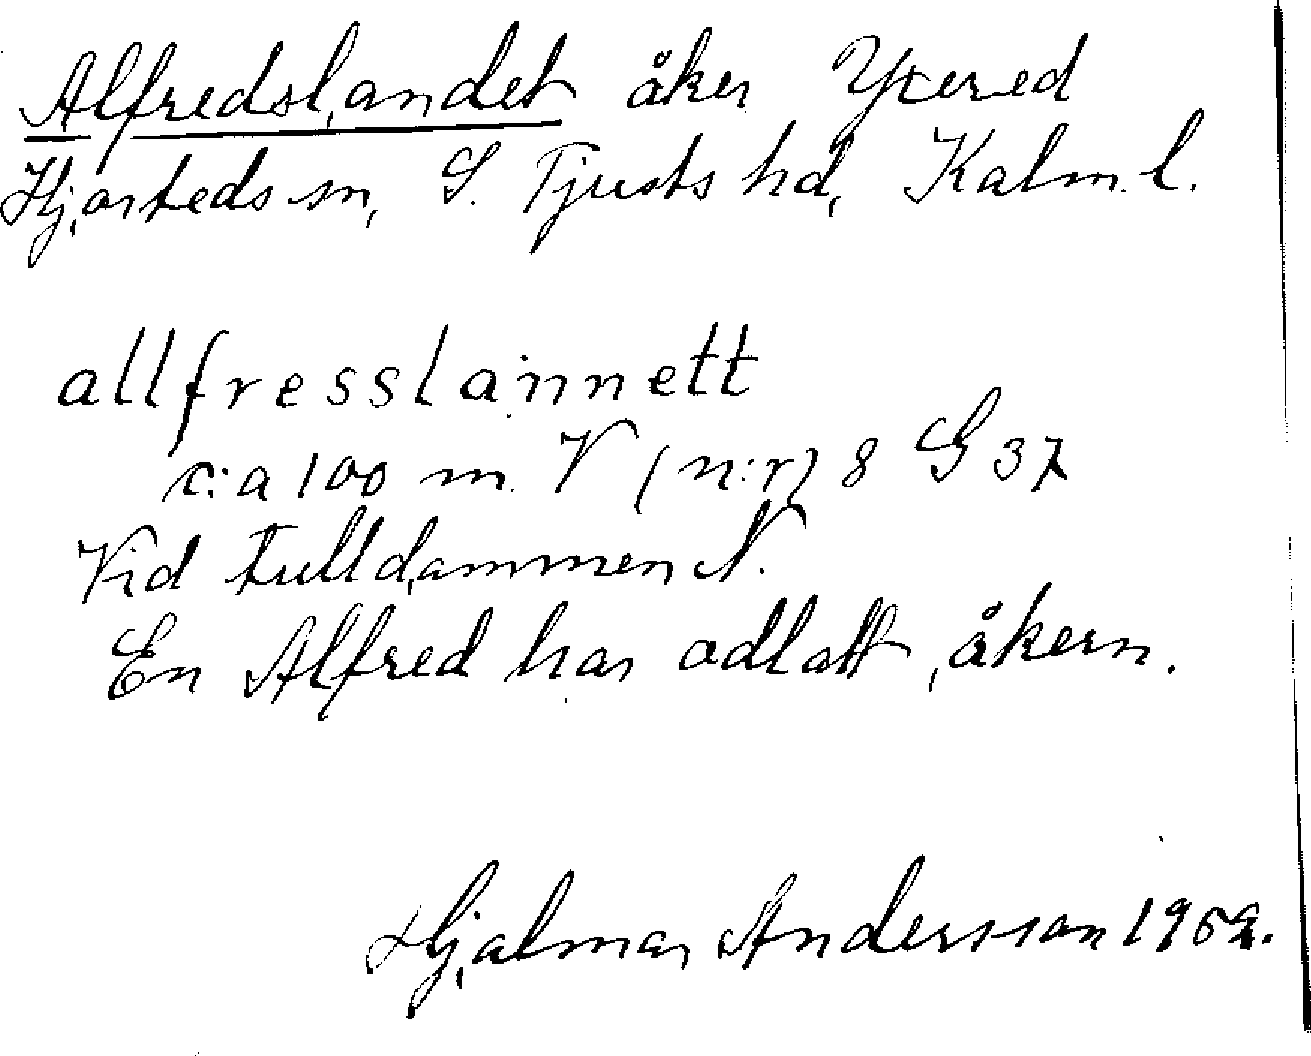 Alfredslandet åker Yxered
Hjorteds sn, S. Tjusts hd, Kalm. l.
allfresslannett
c:a 100 m. V (n:r) 8 G 37
Vid Kulldammen N.
En Alfred har odlatt åkern.
Hjalmar Andersson 1962.